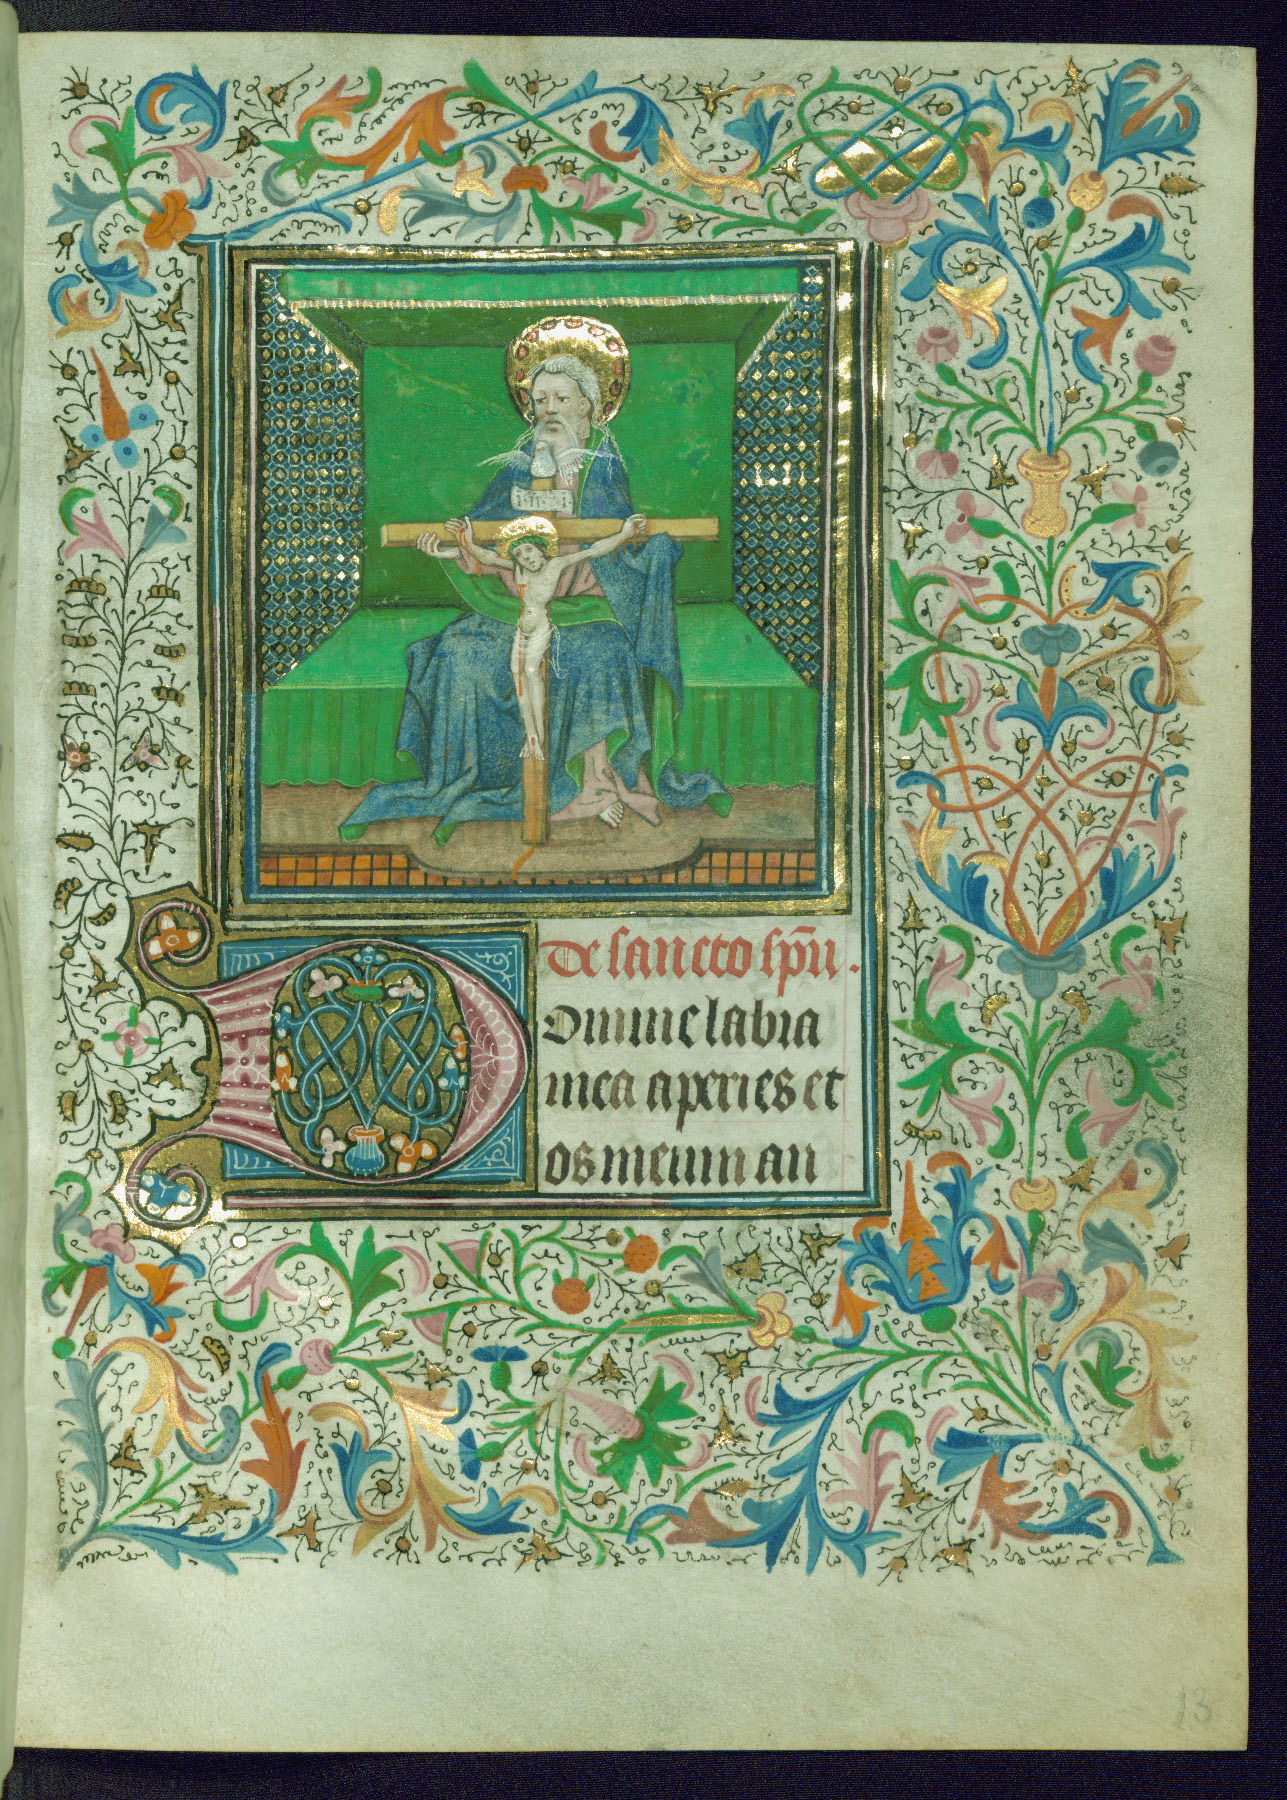 de sancto sp̄u.
Domine labia
mea aperies et
os meum an
13